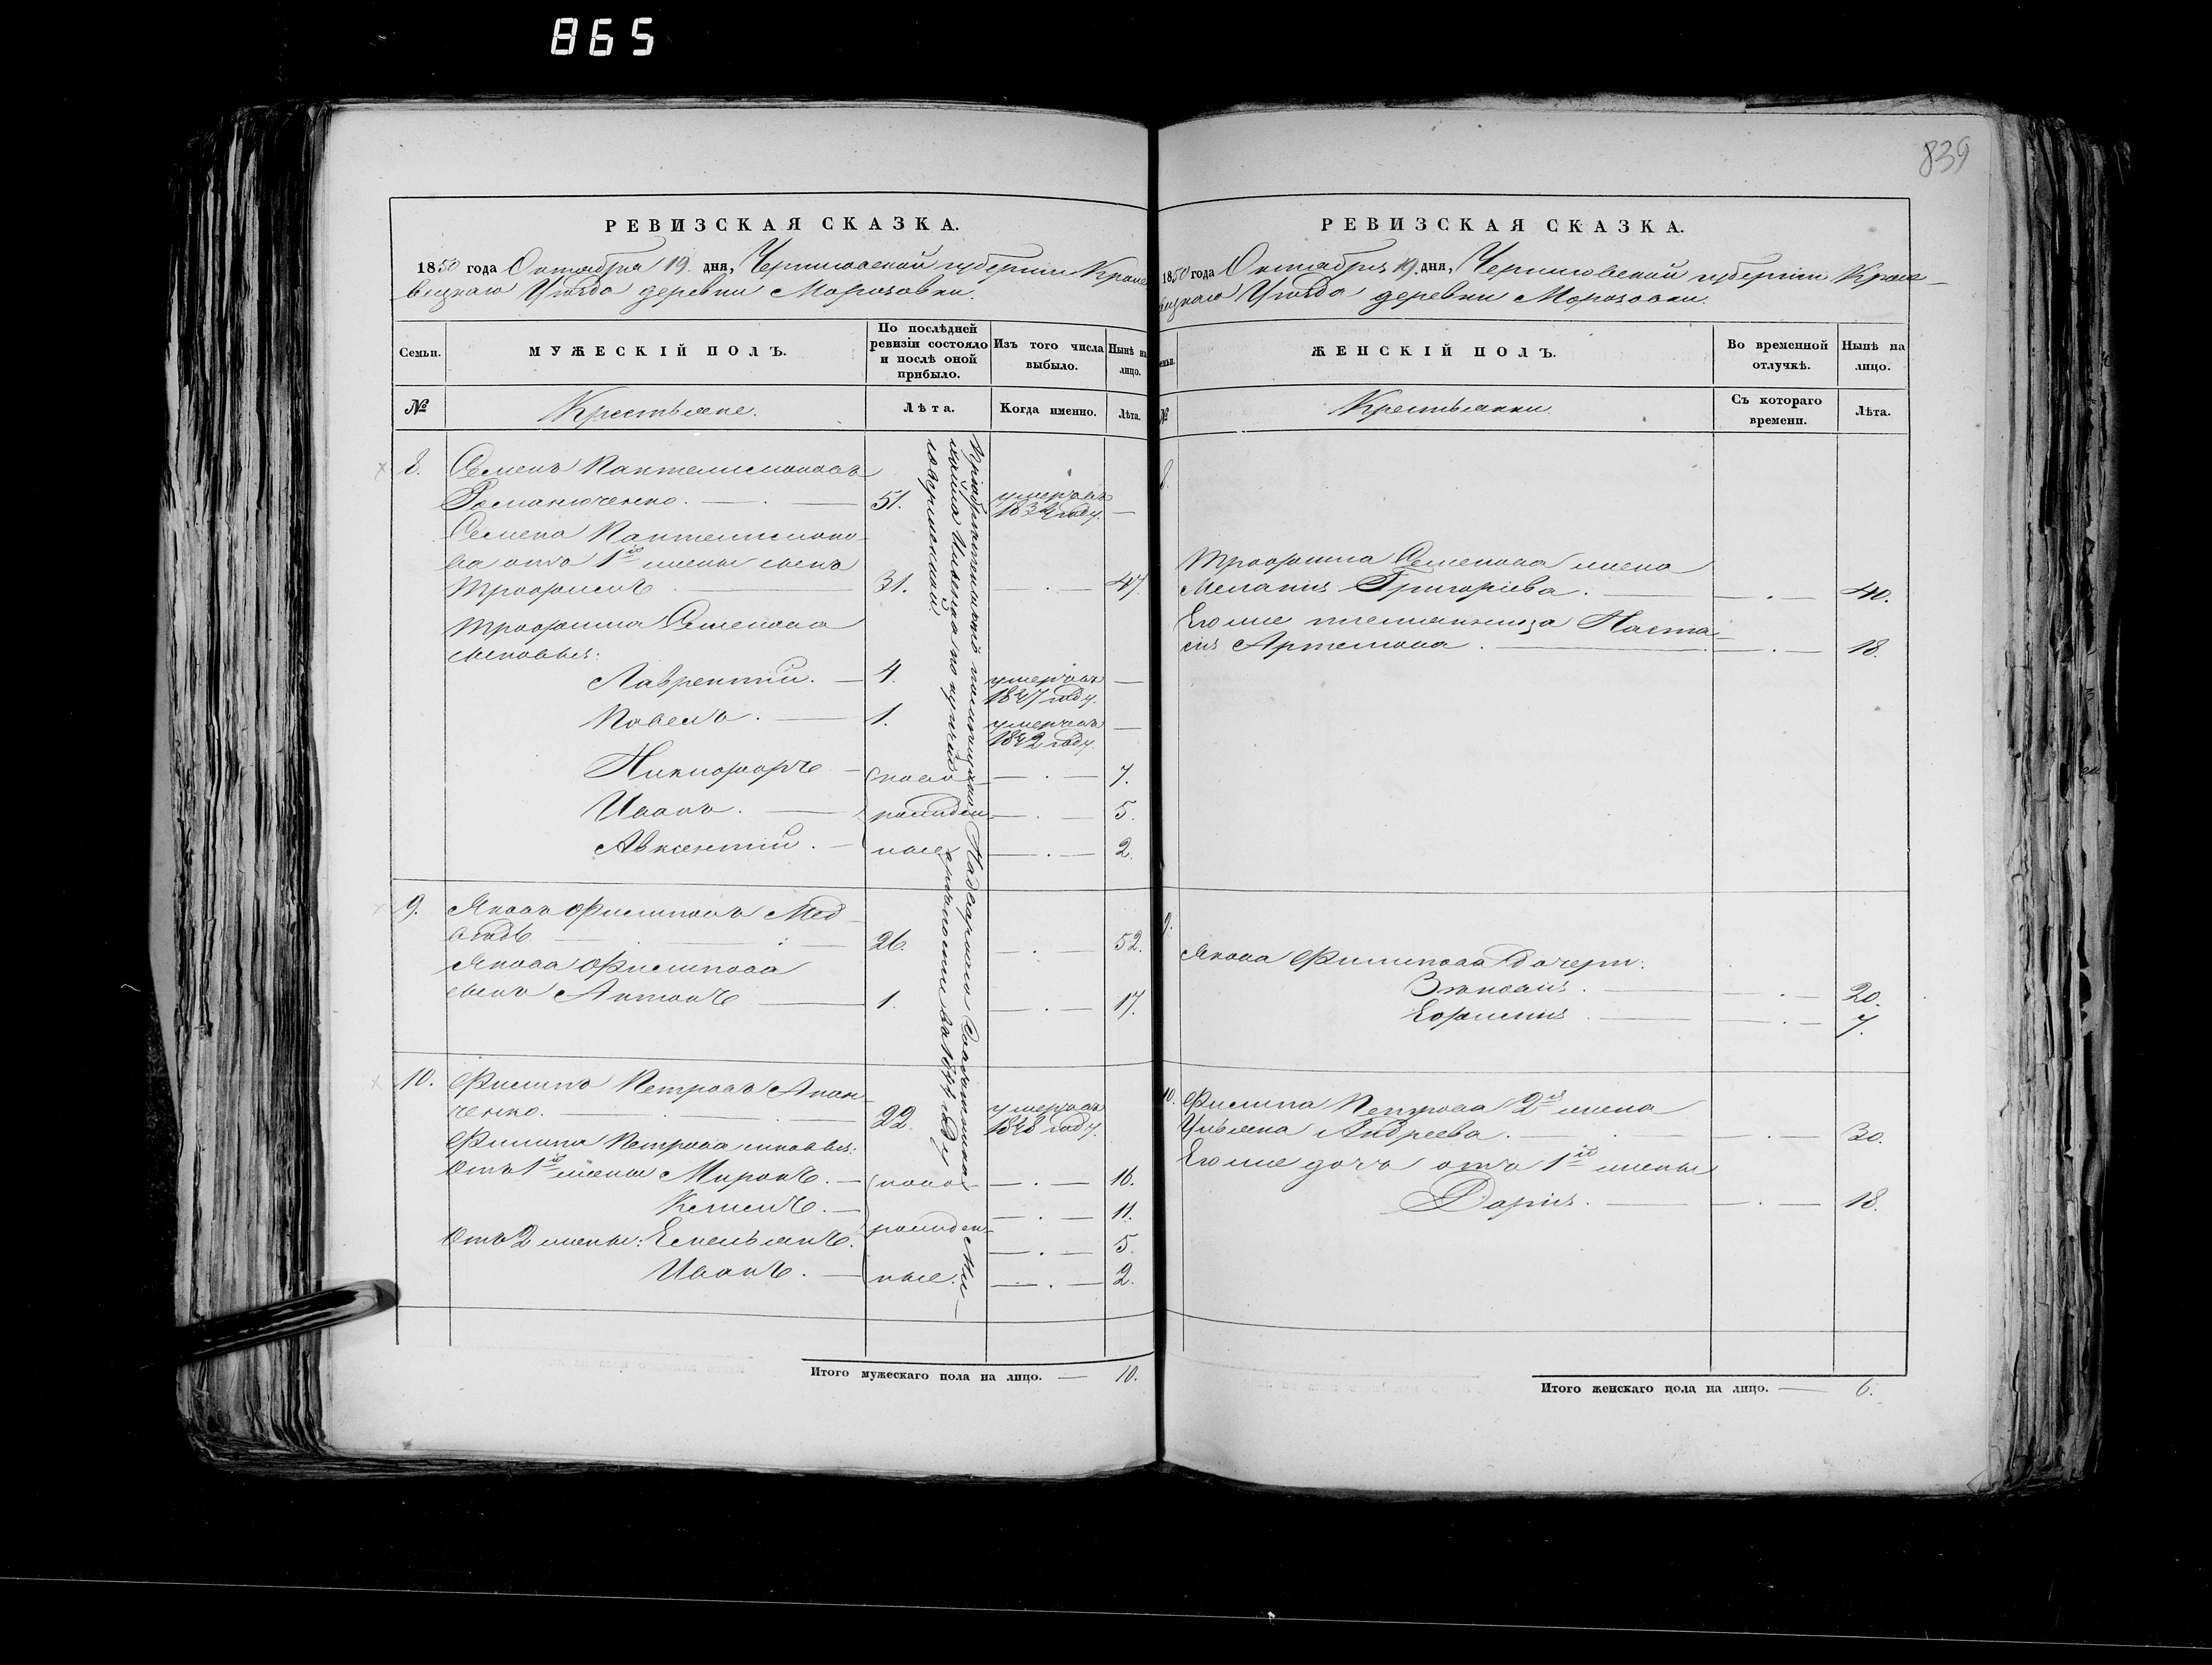 865
839
РЕВИЗСКАЯ СКАЗКА.
1850 года Октября 19 дня, Черниговской губерніи Кроле-
вецкаго Уѣзда деревни Морозовки.
Семьи.
МУЖЕСКІЙ ПОЛЪ.
По послѣдней ревизіи состояло и послѣ оной прибыло.
Изъ того числа выбыло.
Нынѣ на лицо.
№
Крестьяне.
Лѣта.
Когда именно.
Лѣта.
8. Семенъ Пантелимоновъ
Романюченко. 51. умерѣ въ 1834 году. —
Семена Пантелимоно-
ва отъ 1й жены сынъ
Трофимъ 31. — 47.
Трофима Семенова
сыновья:
Лаврентій. 4. умерѣ въ 1847 году. —
Павелъ. 1. умерѣ въ 1842 году. —
Никифоръ — ново — 7.
Иванъ. — рожден- — 5.
Авксентій. — ные — 2.
9. Яковъ Филиповъ Мед-
вѣдь 26. — 52.
Якова Филипова
сынъ Антонъ 1. — 17.
10. Филипъ Петровъ Апан-
ченко. 22. умерѣ въ 1848 году.
Филипа Петрова сыновья:
Отъ 1й жены Миронъ. — ново- — 16.
Клеменъ. — 11.
Отъ 2 жены: Емельянъ. рожден- — 5.
Иванъ. — ные. — 2.
Надворнаго Совѣтника
въ 1844 году
Итого мужескаго пола на лицо. — 10.
РЕВИЗСКАЯ СКАЗКА.
1850 года Октября 19 дня, Черниговской губерніи Кроле-
вецкаго Уѣзда деревни Морозовки.
Семьи.
ЖЕНСКІЙ ПОЛЪ.
Во временной отлучкѣ.
Нынѣ на лицо.
№
Крестьянки
Съ котораго времени.
Лѣта.
8.
Трофима Семенова жена
Меланія Григоріева. — 40.
Его же племянница Наста-
сія Артемова. — 18.
9.
Якова Филипова дочери:
Зѣновія. — 20.
Ефимія — 7.
10. Филипа Петрова 2я жена
Ульяна Андреева. — 30.
Его же дочь отъ 1й жены
Дарія. — 18.
Итого женскаго пола на лицо. — 6.